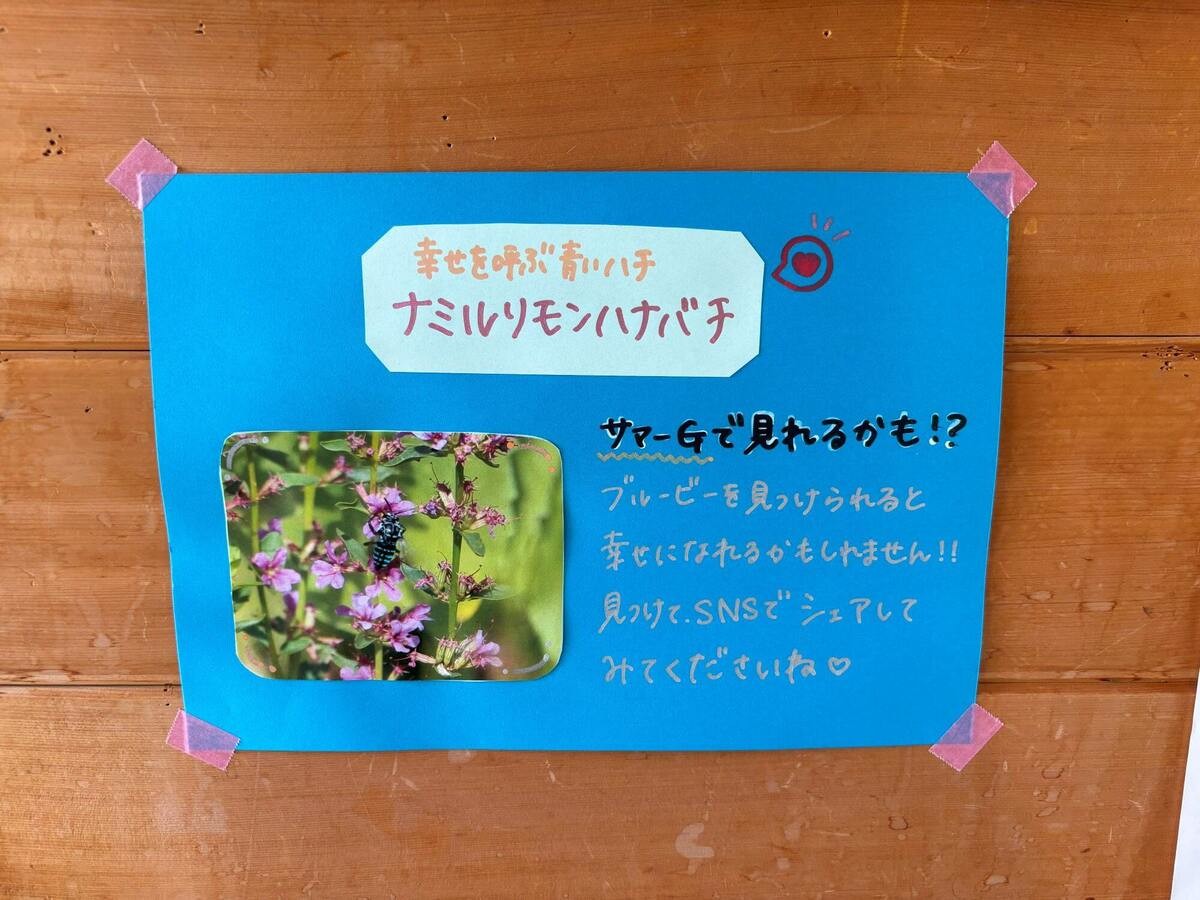 幸せを呼ぶ青いハチ
ナミルリモンハナバチ
サマーGで見れるかも!?
ブルービーを見つけられると
幸せになれるかもしれません!!
見つけて、SNSでシェアして
みてくださいね♡